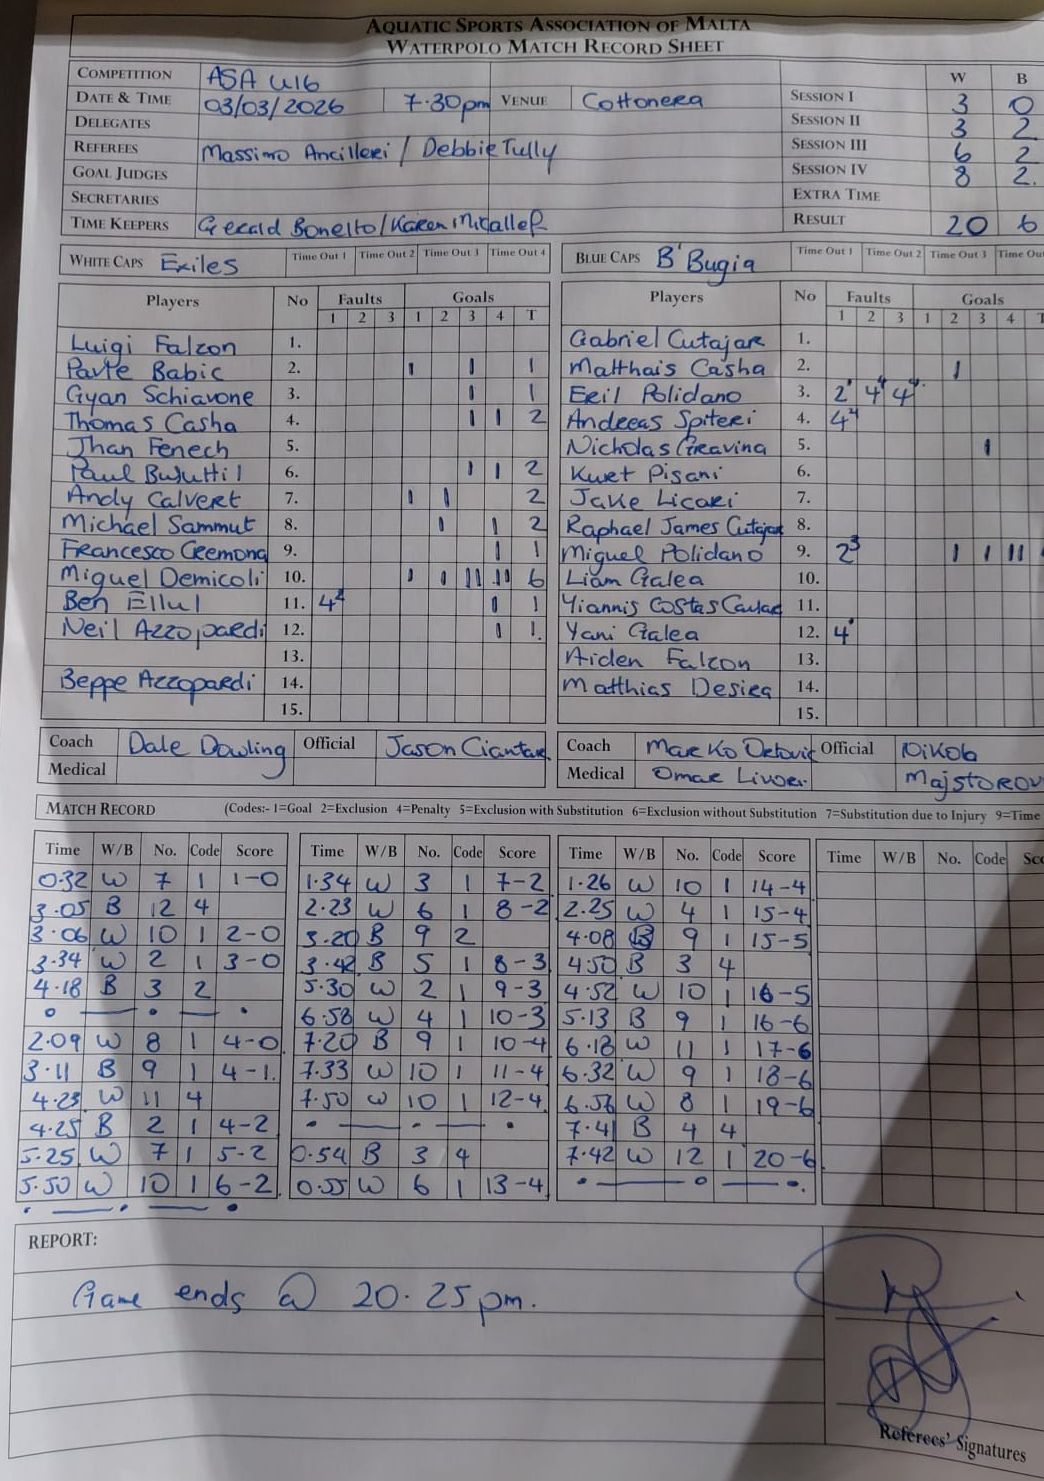 AQUATIC SPORTS ASSOCIATION OF MALTA
WATERPOLO MATCH RECORD SHEET
COMPETITION ASA U16
DATE & TIME 03/03/2026 7.30pm VENUE Cottonera
DELEGATES
REFEREES Massimo Ancilleri / Debbie Tully
GOAL JUDGES
SECRETARIES
TIME KEEPERS Gerald Bonello/Karen Micallef
W B
SESSION I 3 0
SESSION II 3 2
SESSION III 6 2
SESSION IV 8 2.
EXTRA TIME
RESULT 20 6
WHITE CAPS Exiles Time Out 1 Time Out 2 Time Out 3 Time Out 4
Players No Faults Goals
1 2 3 1 2 3 4 T
Luigi Falzon 1.
Pavte Babic 2. 1 1 1
Gyan Schiavone 3. 1 1
Thomas Casha 4. 1 1 2
Jhan Fenech 5.
Paul Busuttil 6. 1 1 2
Andy Calvert 7. 1 1 2
Michael Sammut 8. 1 1 2
Francesco Cremona 9. 1 1
Miguel Demicoli 10. 1 1 11 11 6
Ben Ellul 11. 4² 1 1
Neil Azzopardi 12. 1 1.
13.
Beppe Azzopardi 14.
15.
Coach Dale Dowling Official Jason Ciantar
Medical
BLUE CAPS B'Bugia Time Out 1 Time Out 2 Time Out 3 Time Ou
Players No Faults Goals
1 2 3 1 2 3 4 T
Gabriel Cutajar 1.
Matthais Casha 2. 1
Eril Polidano 3. 2¹ 4⁴ 4⁴
Andreas Spiteri 4. 4⁴
Nicholas Gravina 5. 1
Kurt Pisani 6.
Jake Licari 7.
Raphael James Cutajar 8.
Miguel Polidano 9. 2³ 1 1 11
Liam Galea 10.
Yiannis Costas 11.
Yani Galea 12. 4¹
Aiden Falzon 13.
Matthias Desira 14.
15.
Coach Marko Official Nikola
Medical Omar Majstorov
MATCH RECORD (Codes:- 1=Goal 2=Exclusion 4=Penalty 5=Exclusion with Substitution 6=Exclusion without Substitution 7=Substitution due to Injury 9=Time
Time W/B No. Code Score
0.32 W 7 1 1-0
3.05 B 12 4
3.06 W 10 1 2-0
3.34 W 2 1 3-0
4.18 B 3 2
2.09 W 8 1 4-0
3.11 B 9 1 4-1.
4.23 W 11 4
4.25 B 2 1 4-2
5.25 W 7 1 5-2
5.50 W 10 1 6-2
Time W/B No. Code Score
1.34 W 3 1 7-2
2.23 W 6 1 8-2
3.20 B 9 2
3.42 B 5 1 8-3
5.30 W 2 1 9-3
6.58 W 4 1 10-3
7.20 B 9 1 10-4
7.33 W 10 1 11-4
7.50 W 10 1 12-4
0.54 B 3 4
0.55 W 6 1 13-4
Time W/B No. Code Score
1.26 W 10 1 14-4
2.25 W 4 1 15-4
4.08 B 9 1 15-5
4.50 B 3 4
4.52 W 10 1 16-5
5.13 B 9 1 16-6
6.18 W 11 1 17-6
6.32 W 9 1 18-6
6.56 W 8 1 19-6
7.41 B 4 4
7.42 W 12 1 20-6
Time W/B No. Code Sco
REPORT:
Game ends @ 20.25pm.
Referees' Signatures